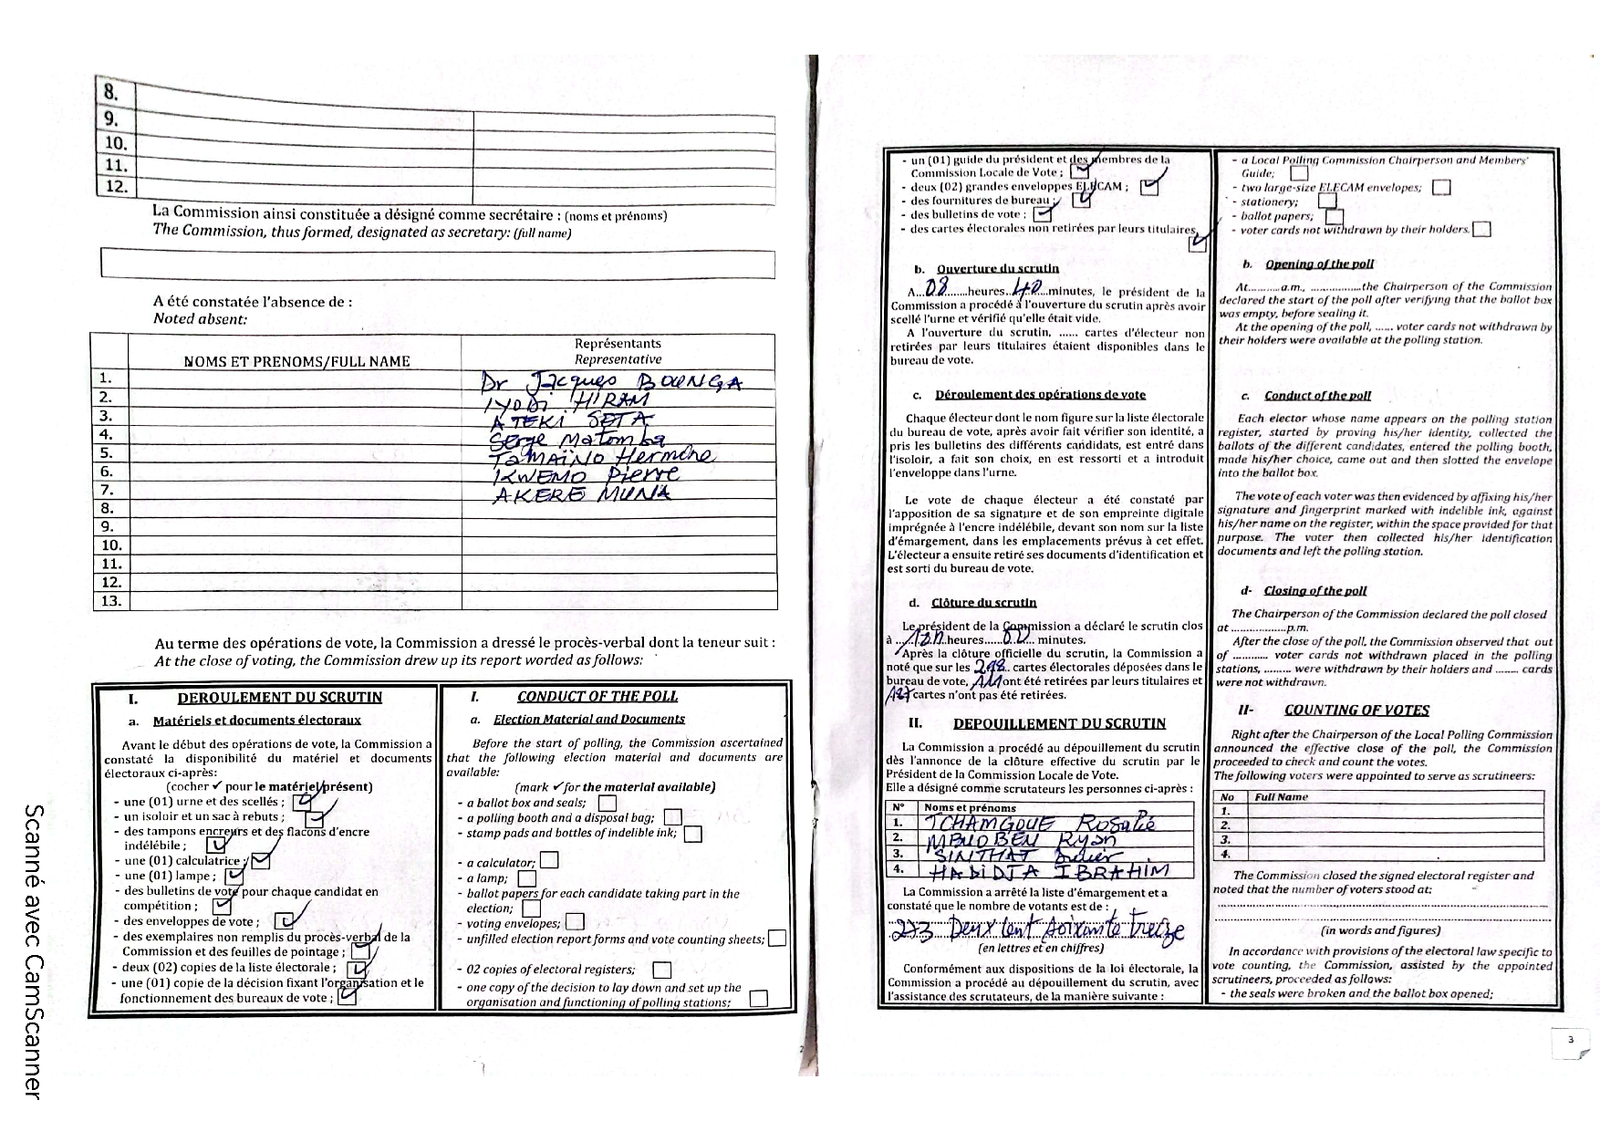 8.
9.
10.
11.
12.
La Commission ainsi constituée a désigné comme secrétaire : (noms et prénoms)
The Commission, thus formed, designated as secretary: (full name)
A été constatée l'absence de :
Noted absent:
NOMS ET PRENOMS/FULL NAME
Représentants
Representative
1. Dr Jacques BOUNGA
2. IYODI HIRAM
3. ATEKI SETA
4. Serge Matomba
5. TOMAÏNO Hermine
6. KWEMO Pierre
7. AKERE MUNA
8.
9.
10.
11.
12.
13.
Au terme des opérations de vote, la Commission a dressé le procès-verbal dont la teneur suit :
At the close of voting, the Commission drew up its report worded as follows:
I. DEROULEMENT DU SCRUTIN
a. Matériels et documents électoraux
Avant le début des opérations de vote, la Commission a
constaté la disponibilité du matériel et documents
électoraux ci-après:
(cocher ✓ pour le matériel présent)
- une (01) urne et des scellés ;
- un isoloir et un sac à rebuts ;
- des tampons encreurs et des flacons d'encre
indélébile ;
- une (01) calculatrice ;
- une (01) lampe ;
- des bulletins de vote pour chaque candidat en
compétition ;
- des enveloppes de vote ;
- des exemplaires non remplis du procès-verbal de la
Commission et des feuilles de pointage ;
- deux (02) copies de la liste électorale ;
- une (01) copie de la décision fixant l'organisation et le
fonctionnement des bureaux de vote ;
I. CONDUCT OF THE POLL
a. Election Material and Documents
Before the start of polling, the Commission ascertained
that the following election material and documents are
available:
(mark ✓ for the material available)
- a ballot box and seals;
- a polling booth and a disposal bag;
- stamp pads and bottles of indelible ink;
- a calculator;
- a lamp;
- ballot papers for each candidate taking part in the
election;
- voting envelopes;
- unfilled election report forms and vote counting sheets;
- 02 copies of electoral registers;
- one copy of the decision to lay down and set up the
organisation and functioning of polling stations;
2
- un (01) guide du président et des membres de la
Commission Locale de Vote ;
- deux (02) grandes enveloppes ELECAM ;
- des fournitures de bureau ;
- des bulletins de vote ;
- des cartes électorales non retirées par leurs titulaires.
b. Ouverture du scrutin
A...08......heures..40...minutes, le président de la
Commission a procédé à l'ouverture du scrutin après avoir
scellé l'urne et vérifié qu'elle était vide.
A l'ouverture du scrutin, ...... cartes d'électeur non
retirées par leurs titulaires étaient disponibles dans le
bureau de vote.
c. Déroulement des opérations de vote
Chaque électeur dont le nom figure sur la liste électorale
du bureau de vote, après avoir fait vérifier son identité, a
pris les bulletins des différents candidats, est entré dans
l'isoloir, a fait son choix, en est ressorti et a introduit
l'enveloppe dans l'urne.
Le vote de chaque électeur a été constaté par
l'apposition de sa signature et de son empreinte digitale
imprégnée à l'encre indélébile, devant son nom sur la liste
d'émargement, dans les emplacements prévus à cet effet.
L'électeur a ensuite retiré ses documents d'identification et
est sorti du bureau de vote.
d. Clôture du scrutin
Le président de la Commission a déclaré le scrutin clos
à heures minutes.
Après la clôture officielle du scrutin, la Commission a
noté que sur les 298.. cartes électorales déposées dans le
bureau de vote, 111 ont été retirées par leurs titulaires et
187 cartes n'ont pas été retirées.
II. DEPOUILLEMENT DU SCRUTIN
La Commission a procédé au dépouillement du scrutin
dès l'annonce de la clôture effective du scrutin par le
Président de la Commission Locale de Vote.
Elle a désigné comme scrutateurs les personnes ci-après :
N° Noms et prénoms
1. TCHAMGOUE Rosalie
2. MBUOBEN Ryan
3. SINTHAT Didier
4. HADIDJA IBRAHIM
La Commission a arrêté la liste d'émargement et a
constaté que le nombre de votants est de :
273 Deux Cent treize
(en lettres et en chiffres)
Conformément aux dispositions de la loi électorale, la
Commission a procédé au dépouillement du scrutin, avec
l'assistance des scrutateurs, de la manière suivante :
- a Local Polling Commission Chairperson and Members'
Guide;
- two large-size ELECAM envelopes;
- stationery;
- ballot papers;
- voter cards not withdrawn by their holders.
b. Opening of the poll
At..........a.m., ................the Chairperson of the Commission
declared the start of the poll after verifying that the ballot box
was empty, before sealing it.
At the opening of the poll, ...... voter cards not withdrawn by
their holders were available at the polling station.
c. Conduct of the poll
Each elector whose name appears on the polling station
register, started by proving his/her identity, collected the
ballots of the different candidates, entered the polling booth,
made his/her choice, came out and then slotted the envelope
into the ballot box.
The vote of each voter was then evidenced by affixing his/her
signature and fingerprint marked with indelible ink, against
his/her name on the register, within the space provided for that
purpose. The voter then collected his/her identification
documents and left the polling station.
d- Closing of the poll
The Chairperson of the Commission declared the poll closed
at ................p.m.
After the close of the poll, the Commission observed that out
of .......... voter cards not withdrawn placed in the polling
stations, ........ were withdrawn by their holders and ........ cards
were not withdrawn.
II- COUNTING OF VOTES
Right after the Chairperson of the Local Polling Commission
announced the effective close of the poll, the Commission
proceeded to check and count the votes.
The following voters were appointed to serve as scrutineers:
No Full Name
1.
2.
3.
4.
The Commission closed the signed electoral register and
noted that the number of voters stood at:
(in words and figures)
In accordance with provisions of the electoral law specific to
vote counting, the Commission, assisted by the appointed
scrutineers, proceeded as follows:
- the seals were broken and the ballot box opened;
3
Scanné avec CamScanner